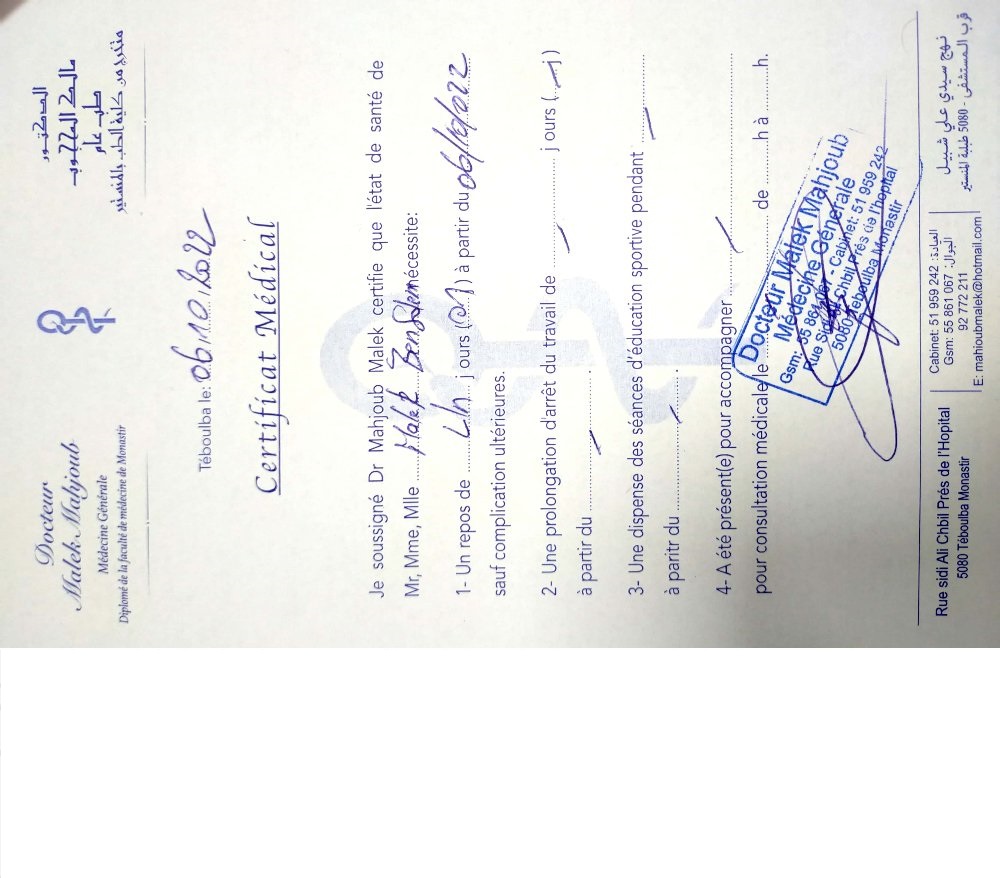 Docteur
Malek Mahjoub
Médecine Générale
Diplomé de la faculté de médecine de Monastir
الدكتور
مالك المحجوب
طب عام
متخرج من كلية الطب بالمنستير
Téboulba le: 06/10/2022
Certificat Médical
Je soussigné Dr Mahjoub Malek certifie que l'état de santé de
Mr, Mme, Mlle Malek Ben nécessite:
1- Un repos de Un j ours (01) à partir du 06/10/022
sauf complication ultérieures.
2- Une prolongation d'arrêt du travail de ........ j ours (....j)
à partir du ........ .
3- Une dispense des séances d'éducation sportive pendant ........
à paritr du ........ .
4- A été présent(e) pour accompagner ........
pour consultation médicale le ........ de ........h à ........h.
Docteur Malek Mahjoub
Médecine Génerale
Gsm: 55 861 067 - Cabinet: 51 959 242
Rue Sidi Ali Chbil Prés de l'hopital
5080 Teboulba Monastir
Rue sidi Ali Chbil Prés de l'Hopital
5080 Téboulba Monastir
Cabinet: 51 959 242 :العيادة
Gsm: 55 861 067 :الجوال
92 772 211
E: mahioubmalek@hotmail.com
نهج سيدي علي شبيل
قرب المستشفى - 5080 طبلبة المنستير